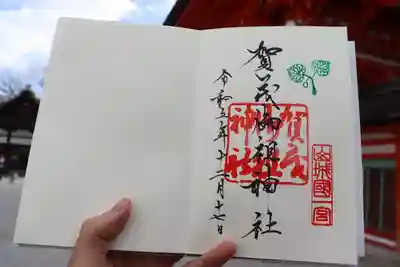 山城國一宮
賀茂御祖神社
賀茂御祖神社
令和五年十二月十七日